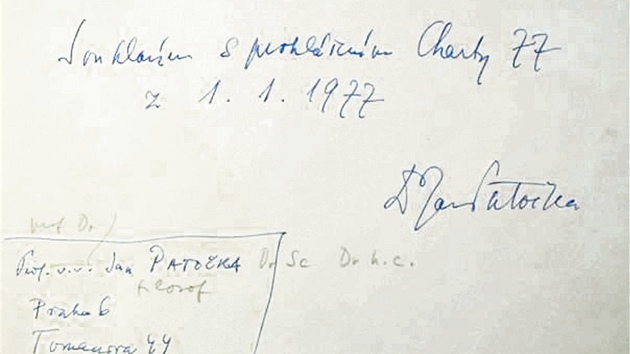 Souhlasím s prohlášením Charty 77
z 1. 1. 1977
Dr Jan Patočka
prof Dr
Prof. v.v. Jan PATOČKA Dr Sc Dr h.c.
filosof
Praha 6
Tomanova 44